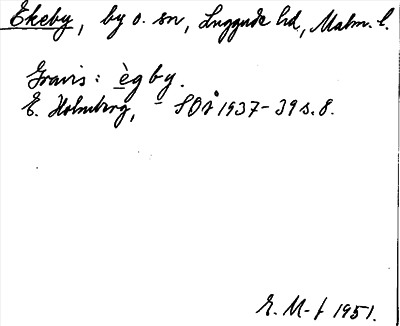 Ekeby, by o. sn, Luggude hd, Malm. l.
Gravis: ègby.
E. Holmberg, – SOÅ 1937-39 s. 8.
E. M-f 1951.